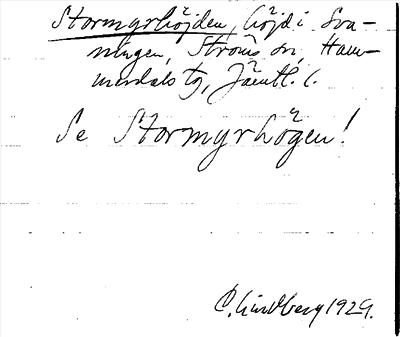 Stormyrhöjden, höjd i Sva-
ningen, Ströms sn, Ham-
merdals tg, Jämtl. l.
Se Stormyrhögen!
C. Lindberg 1929.